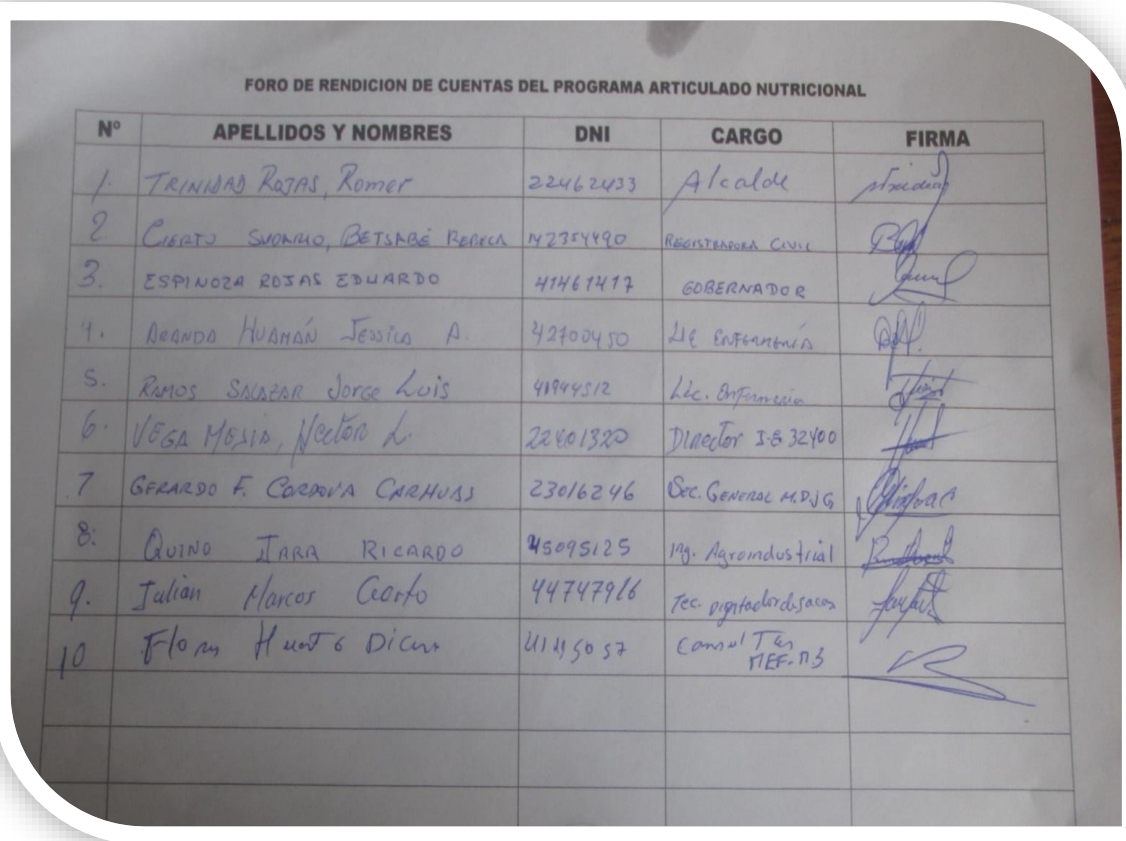 FORO DE RENDICION DE CUENTAS DEL PROGRAMA ARTICULADO NUTRICIONAL
Nº APELLIDOS Y NOMBRES DNI CARGO FIRMA
1. TRINIDAD ROJAS, Romer 22462433 Alcalde
2. CIERTO, BETSABÉ REBECA 42354490 REGISTRADORA CIVIL
3. ESPINOZA ROJAS EDUARDO 41461417 GOBERNADOR
4. ARANDA HUAMÁN JESSICA A. 42700450 LIC ENFERMERÍA
5. RAMOS SALAZAR Jorge Luis 41944512 Lic. Enfermeria
6. VEGA MEJIA, Hector L. 22401320 Director I.E 32400
7 GERARDO F. CORDOVA CARHUAS 23016246 Sec. GENERAL M.D.J.G
8. QUINO JARA RICARDO 45095125 Ing. Agroindustrial
9. Julian Marcos Cierto 44747916 Tec.
10 Flores
MEF-